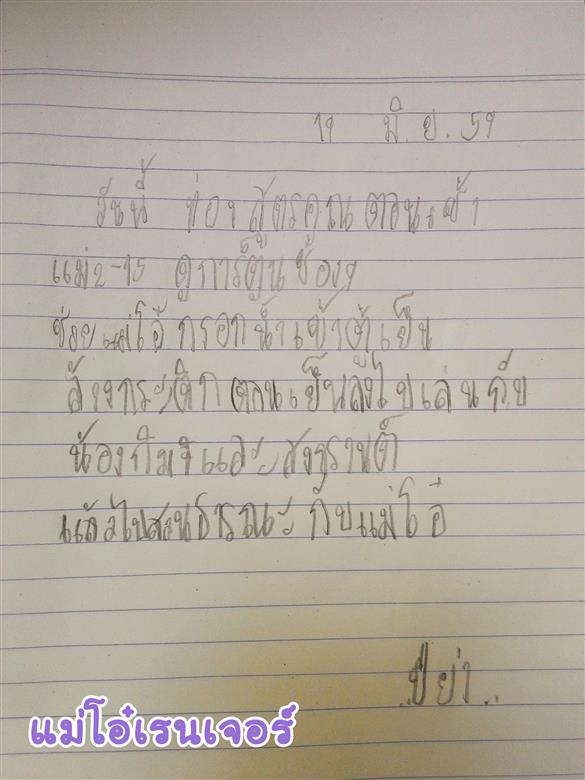 19 มิ.ย. 59
วันนี้ ท่องสูตรคูณตอนเช้า
แม่2-15 ดูการ์ตูนช่อง9
ช่วยแม่โอ๋ กรอกน้ำเข้าตู้เย็น
ล้างกระติก ตอนเย็นลงไปเล่นกับ
น้องกิมจิและสงกรานต์
แล้วไปสวนธารณะ กับแม่โอ๋
แม่โอ๋เรนเจอร์